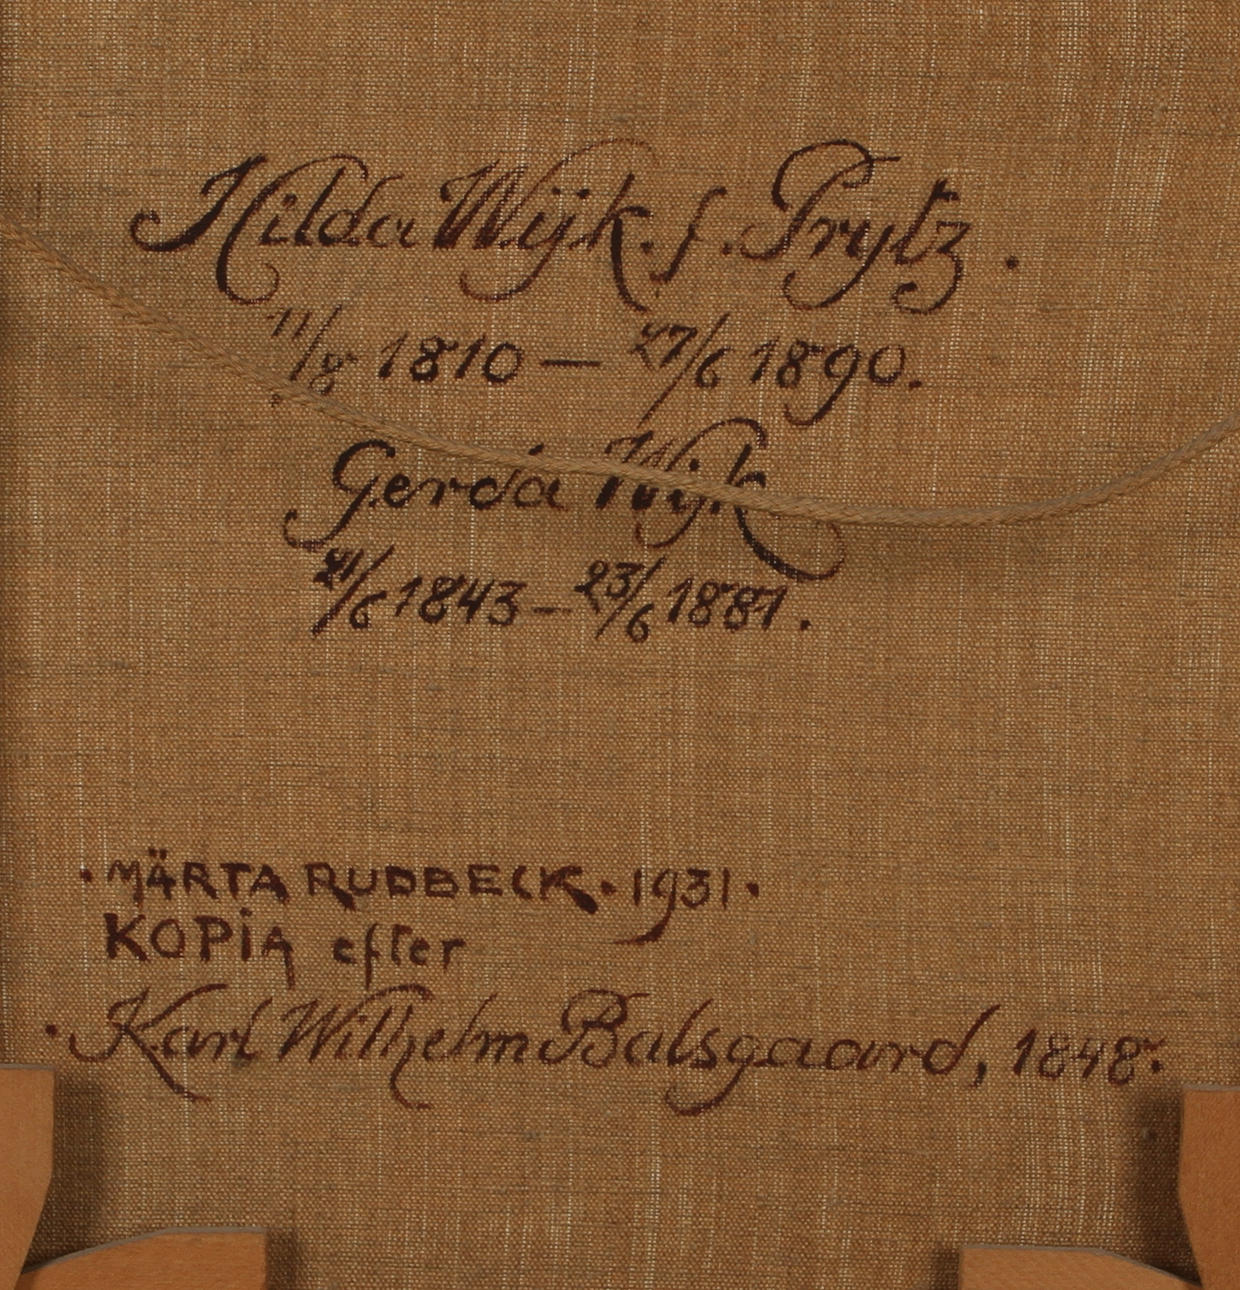 Hilda Wijk. f. Prytz.
11/8 1810 — 27/6 1890.
Gerda Wijk
21/6 1843 — 23/6 1881.
· MÄRTA RUDBECK · 1931 ·
KOPiA efter
· Karl Wilhelm Balsgaard, 1848.